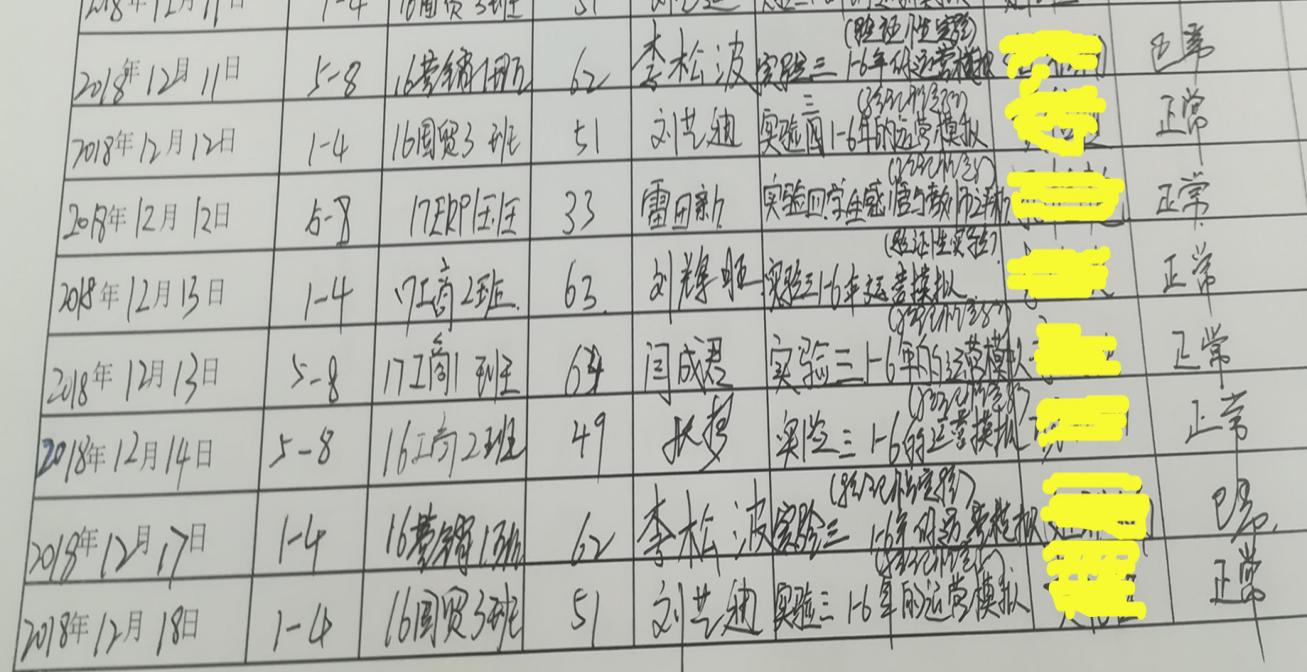 2018年12月11日 1-4 16国贸3班 51
(验证性实验)
2018年12月11日 5-8 16营销1班 62 李松波 实验三 1-6年的运营模拟 正常
三 (验证性实验)
2018年12月12日 1-4 16国贸3班 51 刘艺迪 实验四 1-6年的运营模拟 正常
(验证性实验)
2018年12月12日 5-8 17ERP1班 33 雷田新 实验四 学生感悟与教师 正常
(验证性实验)
2018年12月13日 1-4 17工商2班 63 刘 实验三 1-6年运营模拟 正常
(验证性实验)
2018年12月13日 5-8 17工商1班 64 闫成君 实验三 1-6年的运营模拟 正常
(验证性实验)
2018年12月14日 5-8 16工商2班 49 实验三 1-6的运营模拟 正常
(验证性实验)
2018年12月17日 1-4 16营销1班 62 李松波 实验三 1-6年的运营模拟
(验证性实验)
2018年12月18日 1-4 16国贸3班 51 刘艺迪 实验三 1-6年的运营模拟 正常